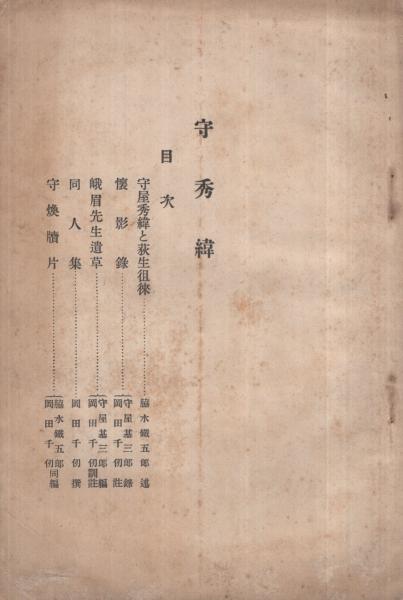 守秀緯
目次
守屋秀緯と荻生徂徠……………脇水鐵五郎述
懷影錄……………守屋基三郎錄
岡田千仭註
峨眉先生遺草……………守屋基三郎編
岡田千仭訓註
同人集……………岡田千仭撰
守煥牘片……………脇水鐵五郎
岡田千仭同編